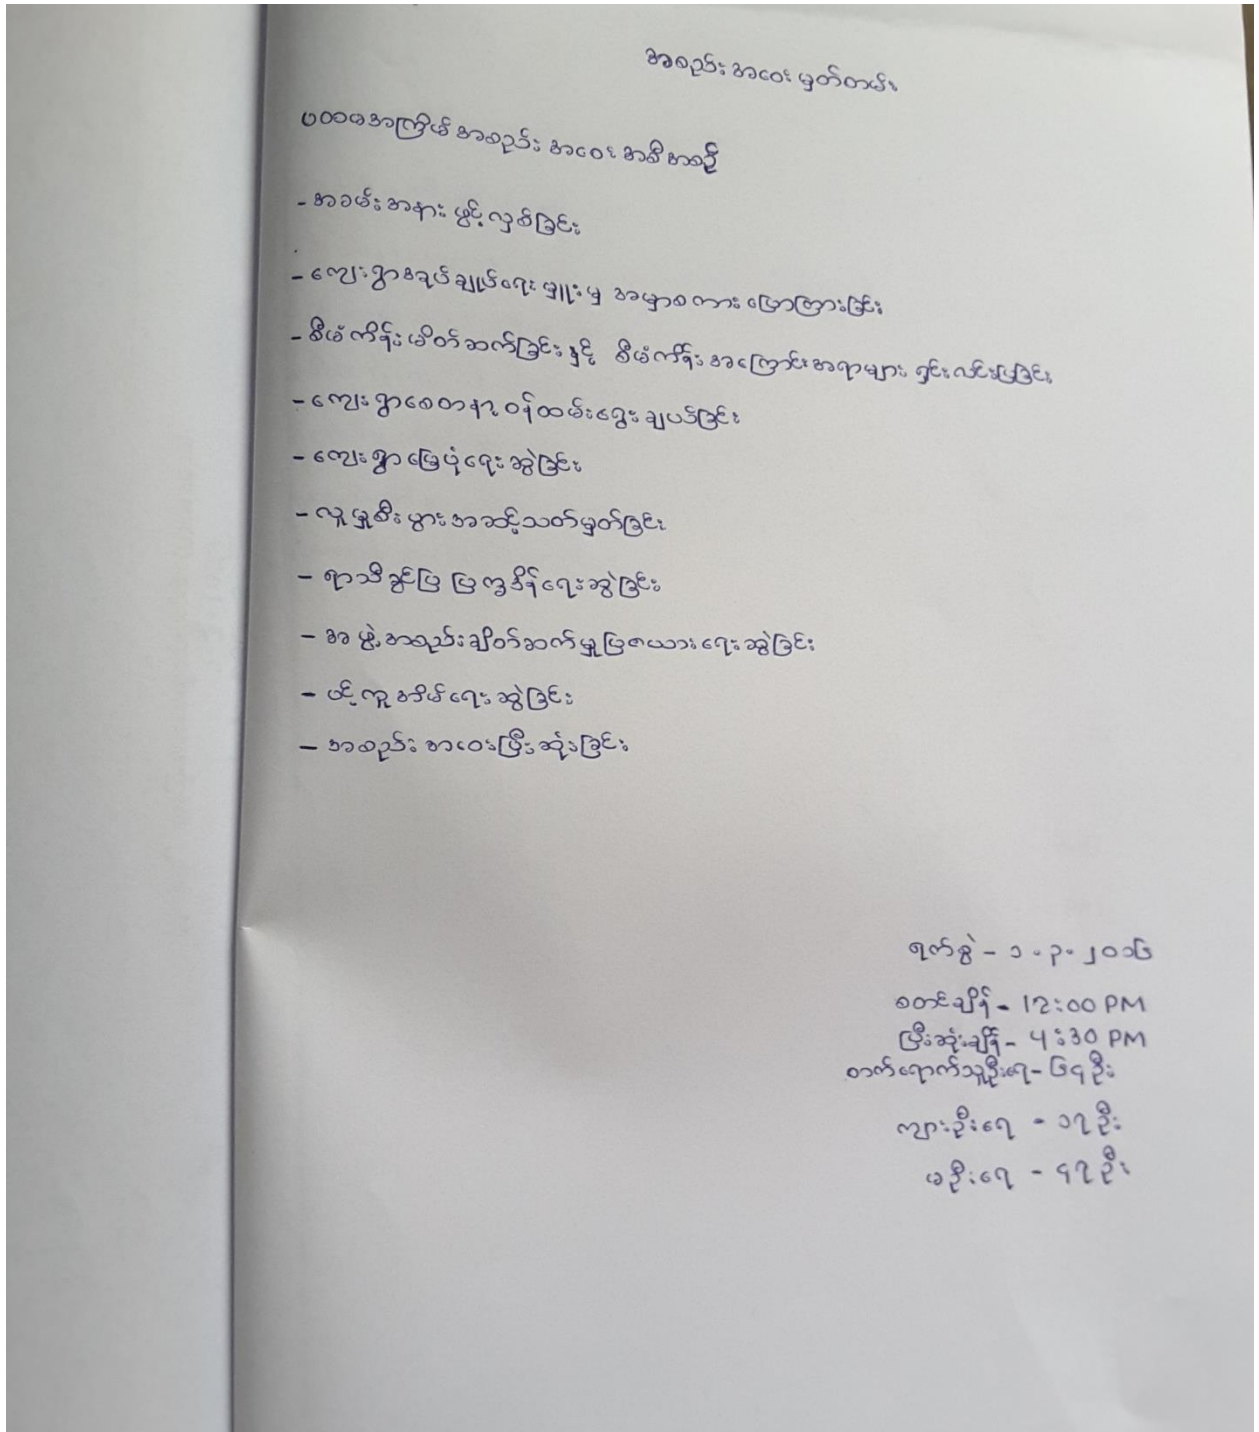 အစည်းအဝေးမှတ်တမ်း
ပထမအကြိမ်အစည်းအဝေးအစီအစဉ်
- အခမ်းအနားဖွင့်လှစ်ခြင်း
- ကျေးရွာအုပ်ချုပ်ရေးမှူးမှ အမှာစကားပြောကြားခြင်း
- စီမံကိန်းမိတ်ဆက်ခြင်းနှင့် စီမံကိန်းအကြောင်းအရာများ ရှင်းလင်းပြခြင်း
- ကျေးရွာစေတနာ့ဝန်ထမ်းရွေးချယ်ခြင်း
- ကျေးရွာမြေပုံရေးဆွဲခြင်း
- လူမှုစီးပွားအဆင့်သတ်မှတ်ခြင်း
- ရာသီခွင်ပြ ပြက္ခဒိန်ရေးဆွဲခြင်း
- အဖွဲ့အစည်းချိတ်ဆက်မှုပြဇယားရေးဆွဲခြင်း
- ပင့်ကူအိမ်ရေးဆွဲခြင်း
- အစည်းအဝေးပြီးဆုံးခြင်း
ရက်စွဲ - ၁-၃-၂၀၁၆
စတင်ချိန် - 12:00 PM
ပြီးဆုံးချိန် - 4:30 PM
တက်ရောက်သူဦးရေ - ၆၄ ဦး
ကျားဦးရေ - ၁၇ ဦး
မဦးရေ - ၄၇ ဦး